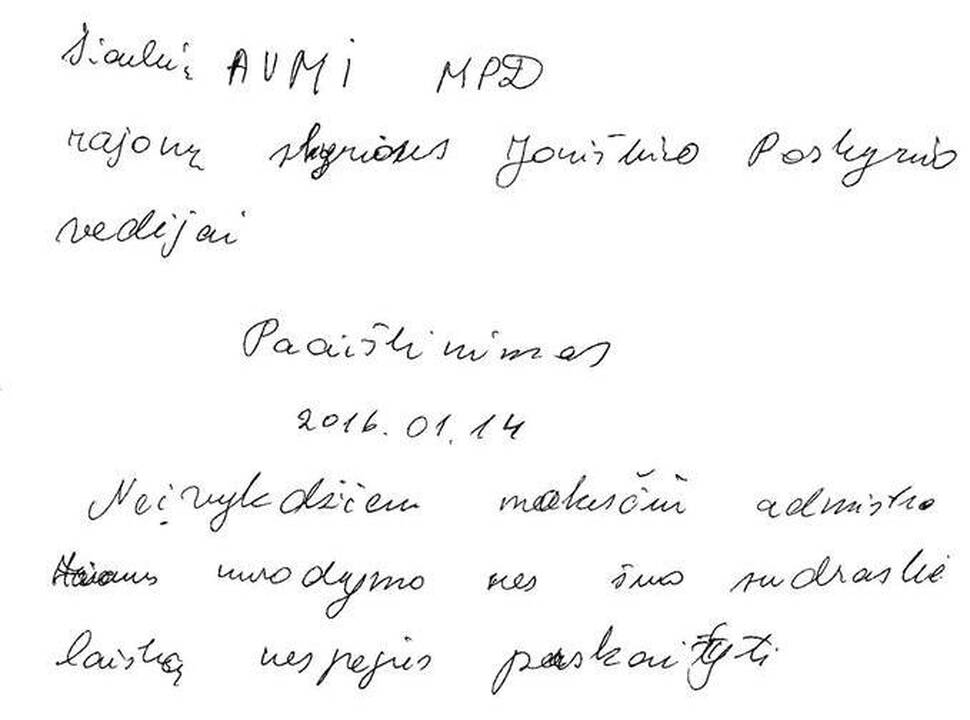 Šiaulių AVMI MPD
rajonų skyriaus Joniškio Poskyrio
vedijai
Paaiškinimas
2016.01.14
Neįvykdžiem mokesčiū admistra
nurodymo nes šuo sudraskė
laišką nespejus paskaityti